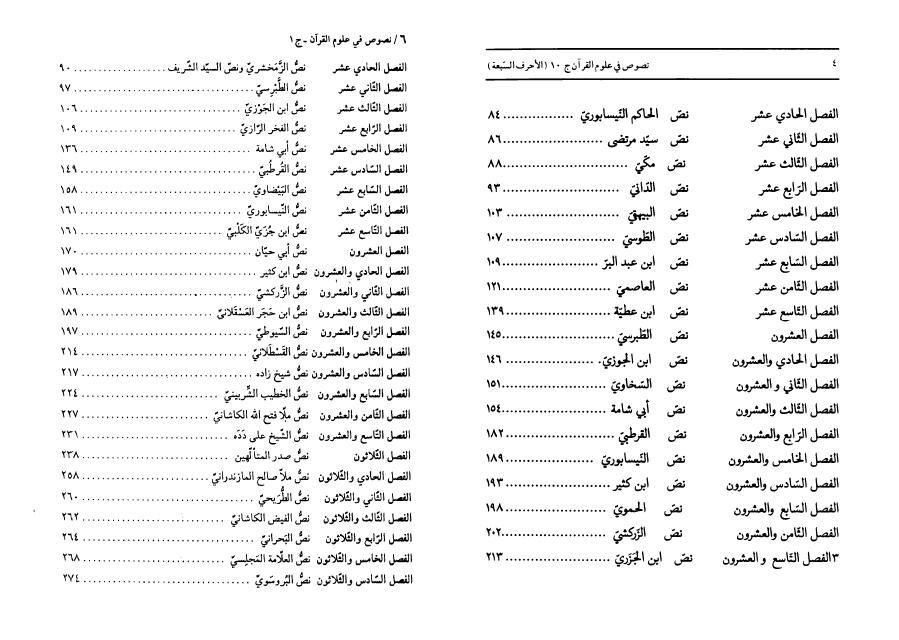 ٤ نصوص في علوم القرآن ج ١٠ (الأحرف السّبعة)
الفصل الحادي عشر نصّ الحاكم النّيسابوريّ ................. ٨٤
الفصل الثّاني عشر نصّ سيّد مرتضى ........................ ٨٦
الفصل الثّالث عشر نصّ مكّيّ .............................. ٨٨
الفصل الرّابع عشر نصّ الدّانيّ ............................ ٩٣
الفصل الخامس عشر نصّ البيهقيّ ........................... ١٠٣
الفصل السّادس عشر نصّ الطّوسيّ .......................... ١٠٧
الفصل السّابع عشر نصّ ابن عبد البرّ ...................... ١٠٩
الفصل الثّامن عشر نصّ العاصميّ .......................... ١٢١
الفصل التّاسع عشر نصّ ابن عطيّة .......................... ١٣٩
الفصل العشرون نصّ الطّبرسيّ .......................... ١٤٥
الفصل الحادي والعشرون نصّ ابن الجوزيّ. ....................... ١٤٦
الفصل الثّاني و العشرون نصّ السّخاويّ .......................... ١٥١
الفصل الثّالث والعشرون نصّ أبي شامة .......................... ١٥٤
الفصل الرّابع والعشرون نصّ القرطبيّ .......................... ١٨٢
الفصل الخامس والعشرون نصّ النّيسابوريّ ........................ ١٨٩
الفصل السّادس والعشرون نصّ ابن كثير ........................... ١٩٣
الفصل السّابع والعشرون نصّ الحمويّ ............................ ١٩٨
الفصل الثّامن والعشرون نصّ الزّركشيّ .......................... ٢٠٢
٣الفصل التّاسع و العشرون نصّ ابن الجَزَريّ ....................... ٢١٣
٦ / نصوص في علوم القرآن ـ ج١
الفصل الحادي عشر نصُّ الزَّمَخشريّ ونصّ السيّد الشّريف ..................... ٩٠
الفصل الثّاني عشر نصُّ الطَّبْرِسيّ ................................. ٩٧
الفصل الثّالث عشر نصُّ ابن الجَوْزيّ ............................... ١٠٦
الفصل الرّابع عشر نصُّ الفخر الرّازيّ .............................. ١٠٩
الفصل الخامس عشر نصُّ أبي شامة ................................. ١٣٦
الفصل السّادس عشر نصُّ القُرطُبيّ ................................. ١٤٩
الفصل السّابع عشر نصُّ البَيْضاويّ ................................ ١٥٨
الفصل الثّامن عشر نصُّ النّيسابوريّ ............................... ١٦١
الفصل التّاسع عشر نصُّ ابن جُزَيّ الكَلْبيّ .......................... ١٦١
الفصل العشرون نصُّ أبي حيّان ................................. ١٧٠
الفصل الحادي والعشرون نصُّ ابن كثير ................................ ١٧٩
الفصل الثّاني والعشرون نصُّ الزّركشيّ ............................... ١٨٦
الفصل الثّالث والعشرون نصُّ ابن حَجَر العَسْقَلانيّ ...................... ١٨٩
الفصل الرّابع والعشرون نصُّ السّيوطيّ ............................... ١٩٧
الفصل الخامس والعشرون نصُّ القَسْطَلانيّ ............................. ٢١٤
الفصل السّادس والعشرون نصُّ شيخ زاده .............................. ٢١٧
الفصل السّابع والعشرون نصُّ الخطيب الشَّربينيّ ........................ ٢٢٤
الفصل الثّامن والعشرون نصُّ ملّا فتح الله الكاشانيّ ...................... ٢٢٧
الفصل التّاسع والعشرون نصُّ الشّيخ على دَدَه ......................... ٢٣١
الفصل الثّلاثون نصُّ صدر المتألّهين ........................... ٢٣٨
الفصل الحادي والثّلاثون نصُّ ملاّ صالح المازندرانيّ .................... ٢٥٨
الفصل الثّاني والثّلاثون نصُّ الطُّرَيحيّ ............................... ٢٦٠
الفصل الثّالث والثّلاثون نصُّ الفيض الكاشانيّ ......................... ٢٦٢
الفصل الرّابع والثّلاثون نصُّ البَحرانيّ .............................. ٢٦٤
الفصل الخامس والثّلاثون نصُّ العلّامة المَجلِسيّ ........................ ٢٦٨
الفصل السّادس والثّلاثون نصُّ البُروسَويّ ............................. ٢٧٤